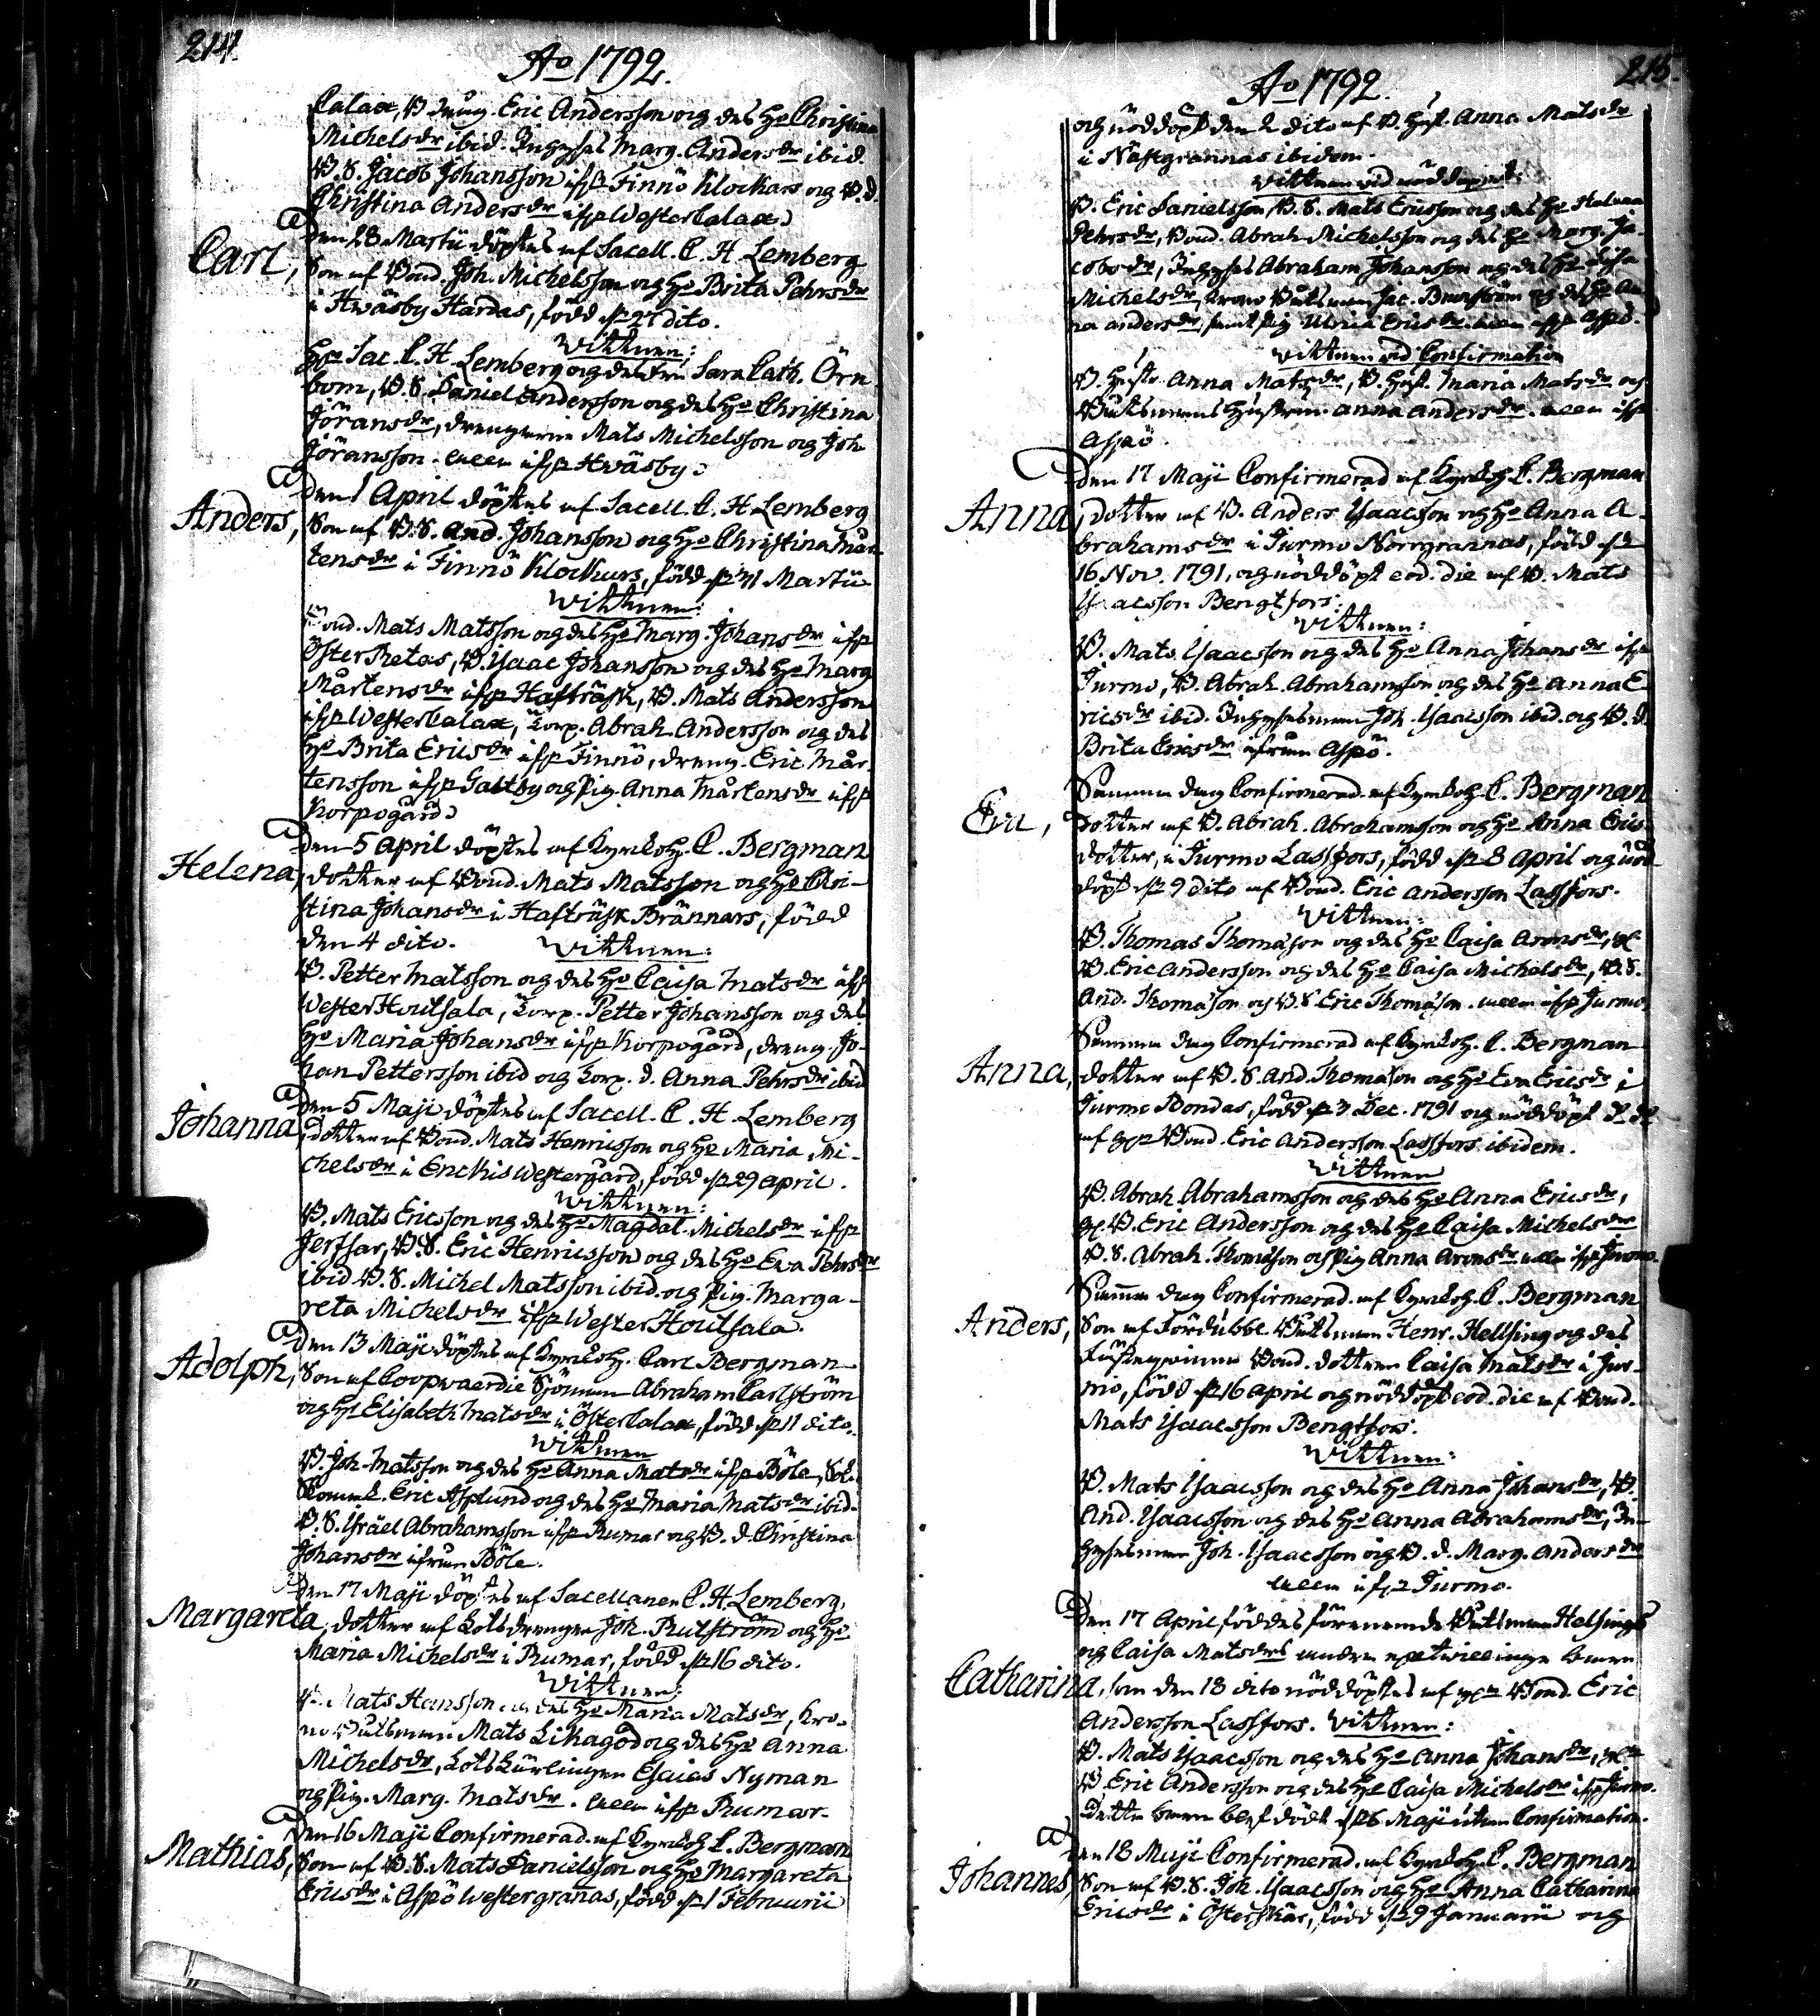 214.
Ao 1792.
Calax, B. Dräng. Eric Andersson og des Ho Christina
Michelsdr ibid. Inhyses Marg. Andersdr ibid.
B. S. Jacob Johansson ifrån Finnö Klockars og B. d.
Christina Andersdr ifrn WesterCalax.
Carl,
Den 28 Martii döptes af Sacell. C. H. Lemberg
Son af Bond. Joh. Michelsson og Ho Brita Pehrsdr
i Hwäsby Härdas, född dn 27 dito.
Wittnen:
Hr Sac. C. H. Lemberg og des Fru Sara Cath. Örn
bom, B. S. Daniel Andersson og des Ho Christina
Jöransdr, drengerne Mats Michelsson og Joh
Jöransson. allen ifrn Hwäsby.
Anders,
Den 1 April döptes af Sacell. C. H. Lemberg
Son af B. S. And. Johansson og Ho Christina Mår
tensdr i Finnö Klockars, född dn 31 Martii
Wittnen:
Bond. Mats Matsson og des Ho Marg. Johansdr ifrn
ÖsterRetas, B. Isaac Johansson og des Ho Marg
Mårtensdr ifrn Hafträsk, B. Mats Andersson
ifrn WesterCalax, Torp. Abrah. Andersson og des
Ho Brita Ericsdr ifrn Finnö, dreng. Eric Mår-
tensson ifrn Galtby og Pig. Anna Mårtensdr ifrn
Korpogård.
Helena,
Den 5 April döptes af Kyrkoh. C. Bergman
dotter af Bond. Mats Matsson og Ho Chri-
stina Johansdr i Hafträsk Brännars, född
den 4 dito.
Wittnen:
B. Petter Matsson og des Ho Caisa Matsdr ifrn
WesterHoutsala, Torp. Petter Johansson og des
Ho Maria Johansdr ifrn Korpogård, dreng. Jo-
han Pettersson ibid og Torp. d. Anna Pehrsdr ibid
Johanna,
Den 5 Maji döptes af Sacell. C. H. Lemberg
dotter af Bond. Mats Henricsson og Ho Maria Mi-
chelsdr i Erickis Westergård, född dn 29 april.
Wittnen:
B. Mats Ericsson og des Ho Magdal. Michelsdr ifrn
Jerfsar, B. S. Eric Henricsson og des Ho Eva Pehrsdr
ibid B. S. Michel Matsson ibid. og Pig. Marga-
reta Michelsdr ifrn WesterHoutsala.
Adolph,
Den 13 Maji döptes af Kyrkoh. Carl Bergman
Son af Coopvaerdie Sjöman Abraham Carlström
og Ho Elisabeth Matsdr i ÖsterCalax, född dn 11 dito.
Wittnen
B. Joh. Matsson og des Ho Anna Matsdr ifrn Böle,
Eric Asplund og des Ho Maria Matsdr ibid.
B. S. Israel Abrahamsson ifrn Rumar og B. d. Christina
Johansdr ifrån Böle.
Margareta,
Den 17 Maji döptes af Sacellanen C. H. Lemberg,
dotter af Lotsdrengen Joh. Rutström og Ho
Maria Michelsdr i Rumar, född dn 16 dito.
Wittnen:
B. Mats Hansson og des Ho Maria Matsdr, Kro-
no Båtsman Mats Likagod og des Ho Anna
Michelsdr, Lots Lärlingen Esaias Nyman
og Pig. Marg. Matsdr. allen ifrn Rumar.
Mathias,
Den 16 Maji Confirmerad af Kyrkoh. C. Bergman
Son af B. S. Mats Danielsson og Ho Margareta
Ericsdr i Aspö Westergranas, född dn 1 Februarii
215.
Ao 1792.
og nöddöpt den 2 dito af B. Hust. Anna Matsdr
i Nästgrannas ibidem.
Wittnen vid nöddopet:
B. Eric Danielsson, B. S. Mats Ericsson og des Ho Helena
Pehrsdr, Bond. Abrah Michelsson og des Ho Marg. Ja-
cobsdr, Inhyses Abraham Johansson og des Ho Lisa
Michelsdr, Krono Båtsman Jac. Brunström og des Ho An
na andersdr, samt Pig Ulrica Ericsdr. allen ifrn Aspö.
Wittnen vid Confirmation
B. Hust. Anna Matsdr, B. Hust. Maria Matsdr og
Båtsmans Hustrun Anna Andersdr. allen ifrn
Aspö
Anna,
Den 17 Maji Confirmerad af Kyrkoh. C. Bergman
dotter af B. Anders Isaacsson og Ho Anna A-
brahamsdr i Jurmo Norrgrannas, född dn
16 Nov. 1791, og nöddöpt eod. die af B. Mats
Isaacsson Bengtsfors:
Wittnen:
B. Mats Isaacsson og des Ho Anna Johansdr ifrn
Jurmo, B. Abrah. Abrahamsson og des Ho Anna E-
ricsdr ibid. Inhysesman Joh. Isaacsson ibid. og B. d.
Brita Ericsdr ifrån Aspö.
Eva,
Samma dag Confirmerad af Kyrkoh. C. Bergman
dotter af B. Abrah. Abrahamsson og Ho Anna Erics-
dotter, i Jurmo Lassfors, född dn 8 April og nöd
döpt dn 9 dito af Bond. Eric Andersson Lassfors.
Wittnen:
B. Thomas Thomasson og des Ho Caisa Aronsdr,
B. Eric Andersson og des Ho Caisa Michelsdr, B. S.
And. Thomasson og B. S. Eric Thomasson. allen ifrn Jurmo.
Anna,
Samma dag Confirmerad af Kyrkoh. C. Bergman
dotter af B. S. And. Thomasson og Ho Eva Ericsdr i
Jurmo Bondas, född dn 3 Dec. 1791 og nöddöpt
af Bond. Eric Andersson Lassfors ibidem.
Wittnen
B. Abrah. Abrahamsson og des Ho Anna Ericsdr,
B. Eric Andersson og des Ho Caisa Michelsdr
B. S. Abrah. Thomasson og Pig Anna Aronsdr allen ifrn Jurmo.
Anders,
Samma dag Confirmerad af Kyrkoh. C. Bergman
Son af Fördubbl. Båtsman Henr. Helsing og des
Fästeqvinna Bond. dottren Caisa Matsdr i Jur-
mo, född dn 16 april og nöddöpt eod. die af Bond.
Mats Isaacsson Bengtsfors.
Wittnen:
B. Mats Isaacsson og des Ho Anna Johansdr, B.
And. Isaacsson og des Ho Anna Abrahamsdr, In-
hysesman Joh. Isaacsson og B. d. Marg. Andersdr
allen ifrn Jurmo.
Catharina,
Den 17 April föddes förenemde Båtsman Helsings
og Caisa Matsdrs andra twillinge barn
som den 18 dito nöddöptes af Bond. Eric
Andersson Lassfors. Wittnen:
B. Mats Isaacsson og des Ho Anna Johansdr,
B. Eric Andersson og des Ho Caisa Michelsdr ifrn Jurmo.
detta barn blef dödt dn 6 Maji utan Confirmation.
Johannes,
Den 18 Maji Confirmerad af Kyrkoh. C. Bergman
Son af B. S. Joh. Isaacsson og Ho Anna Catharina
Ericsdr i Österskär, född dn 9 Januarii og